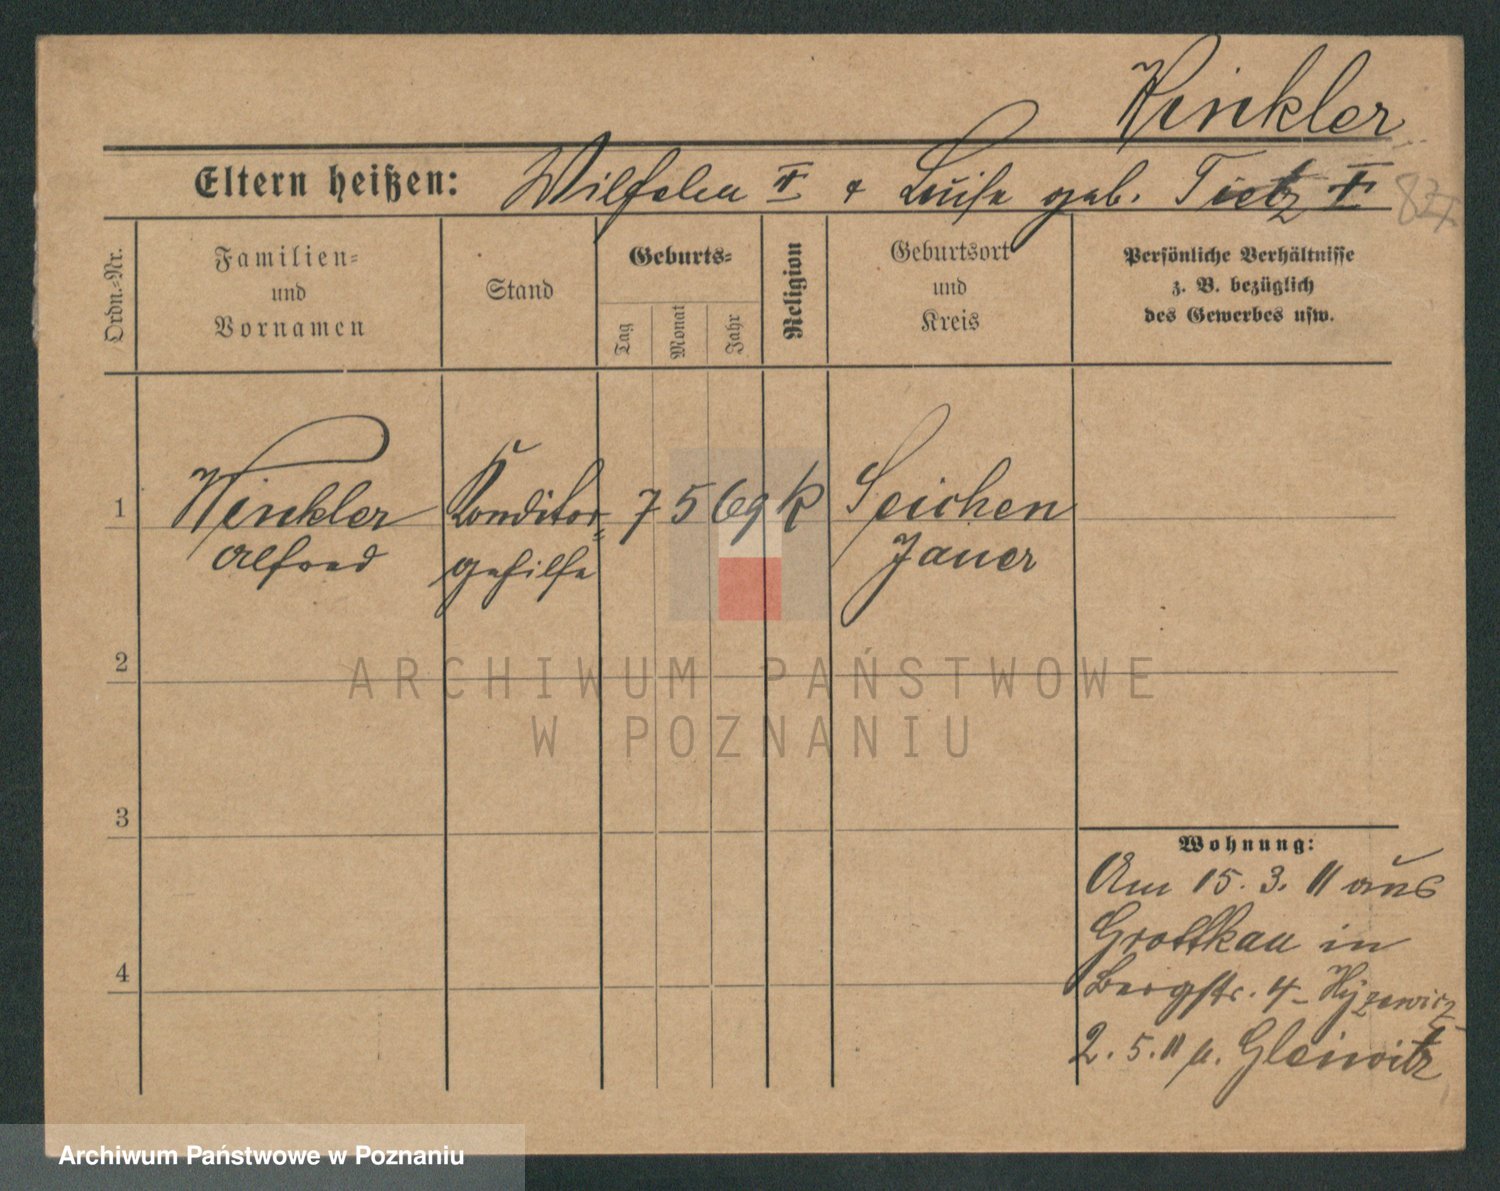 Winkler
Eltern heißen: Wilhelm † & Luise geb. Tietz †
Ordn.-Nr.
Familien-
und
Vornamen
Stand
Geburts-
Tag
Monat
Jahr
Religion
Geburtsort
und
Kreis
Persönliche Verhältnisse
z. B. bezüglich
des Gewerbes usw.
1 Winkler Konditor- 7 5 69 k Seichen
Alfred gehilfe Jauer
2
3
4
Wohnung:
Am 15. 3. 11 aus
Grottkau in
Bergstr. 4
2. 5. 11 n. Gleiwitz
ARCHIWUM PAŃSTWOWE
W POZNANIU
Archiwum Państwowe w Poznaniu